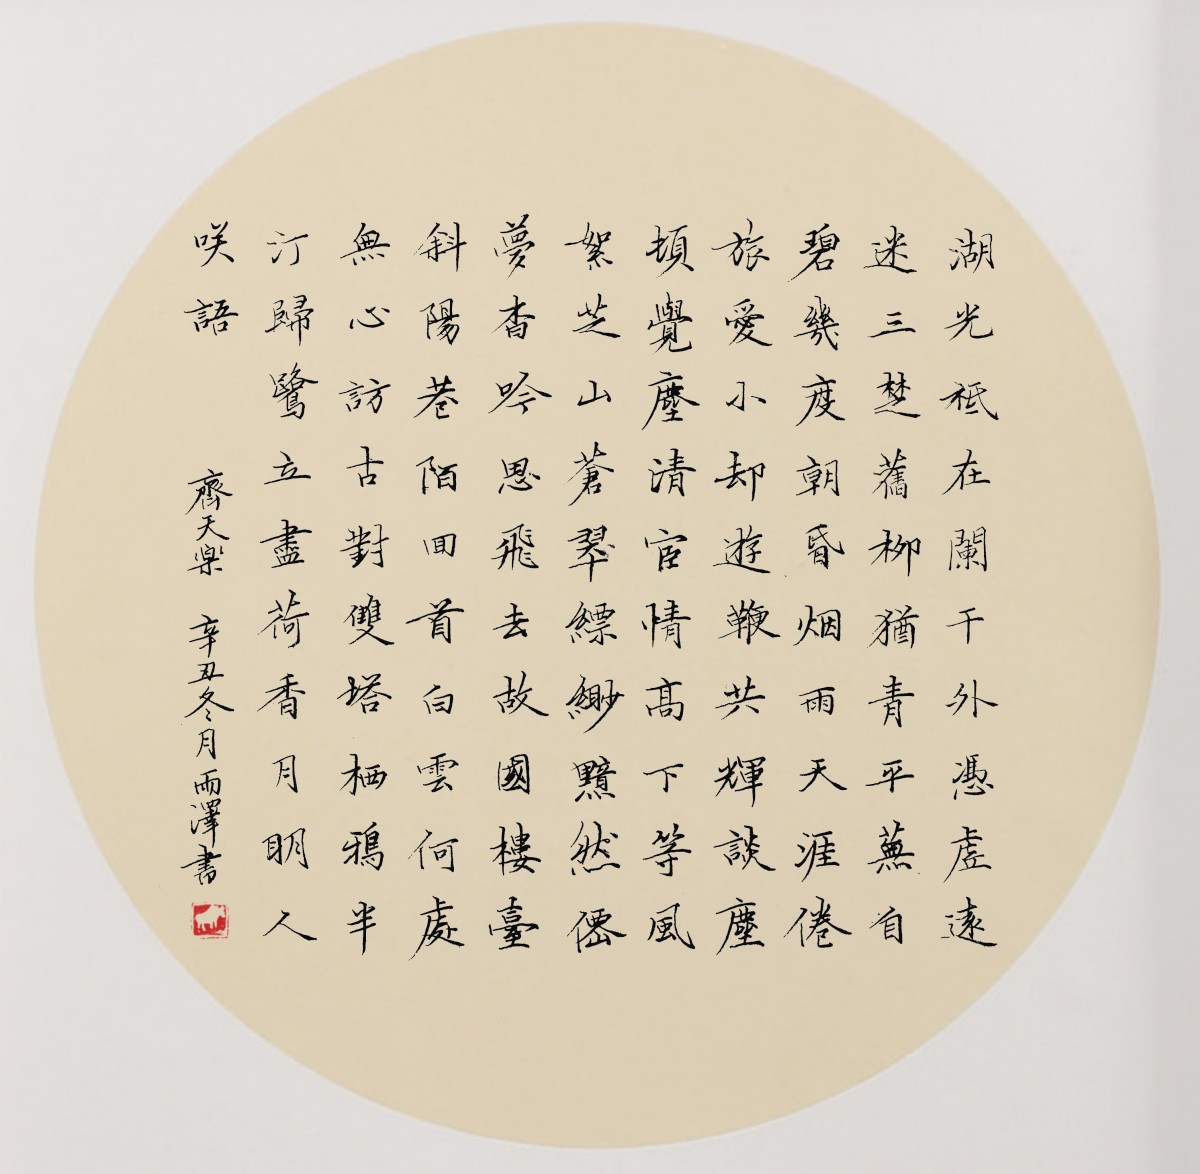 湖光祗在闌干外憑虛遠
迷三楚舊柳猶青平蕪自
碧幾度朝昏烟雨天涯倦
旅愛小却遊鞭共輝談塵
頓覺塵清宦情高下等風
絮芝山蒼翠縹緲黯然僊
夢杳吟思飛去故國樓臺
斜陽巷陌回首白雲何處
無心訪古對雙塔栖鴉半
汀歸鷺立盡荷香月明人
咲語
齊天樂 辛丑冬月雨澤書